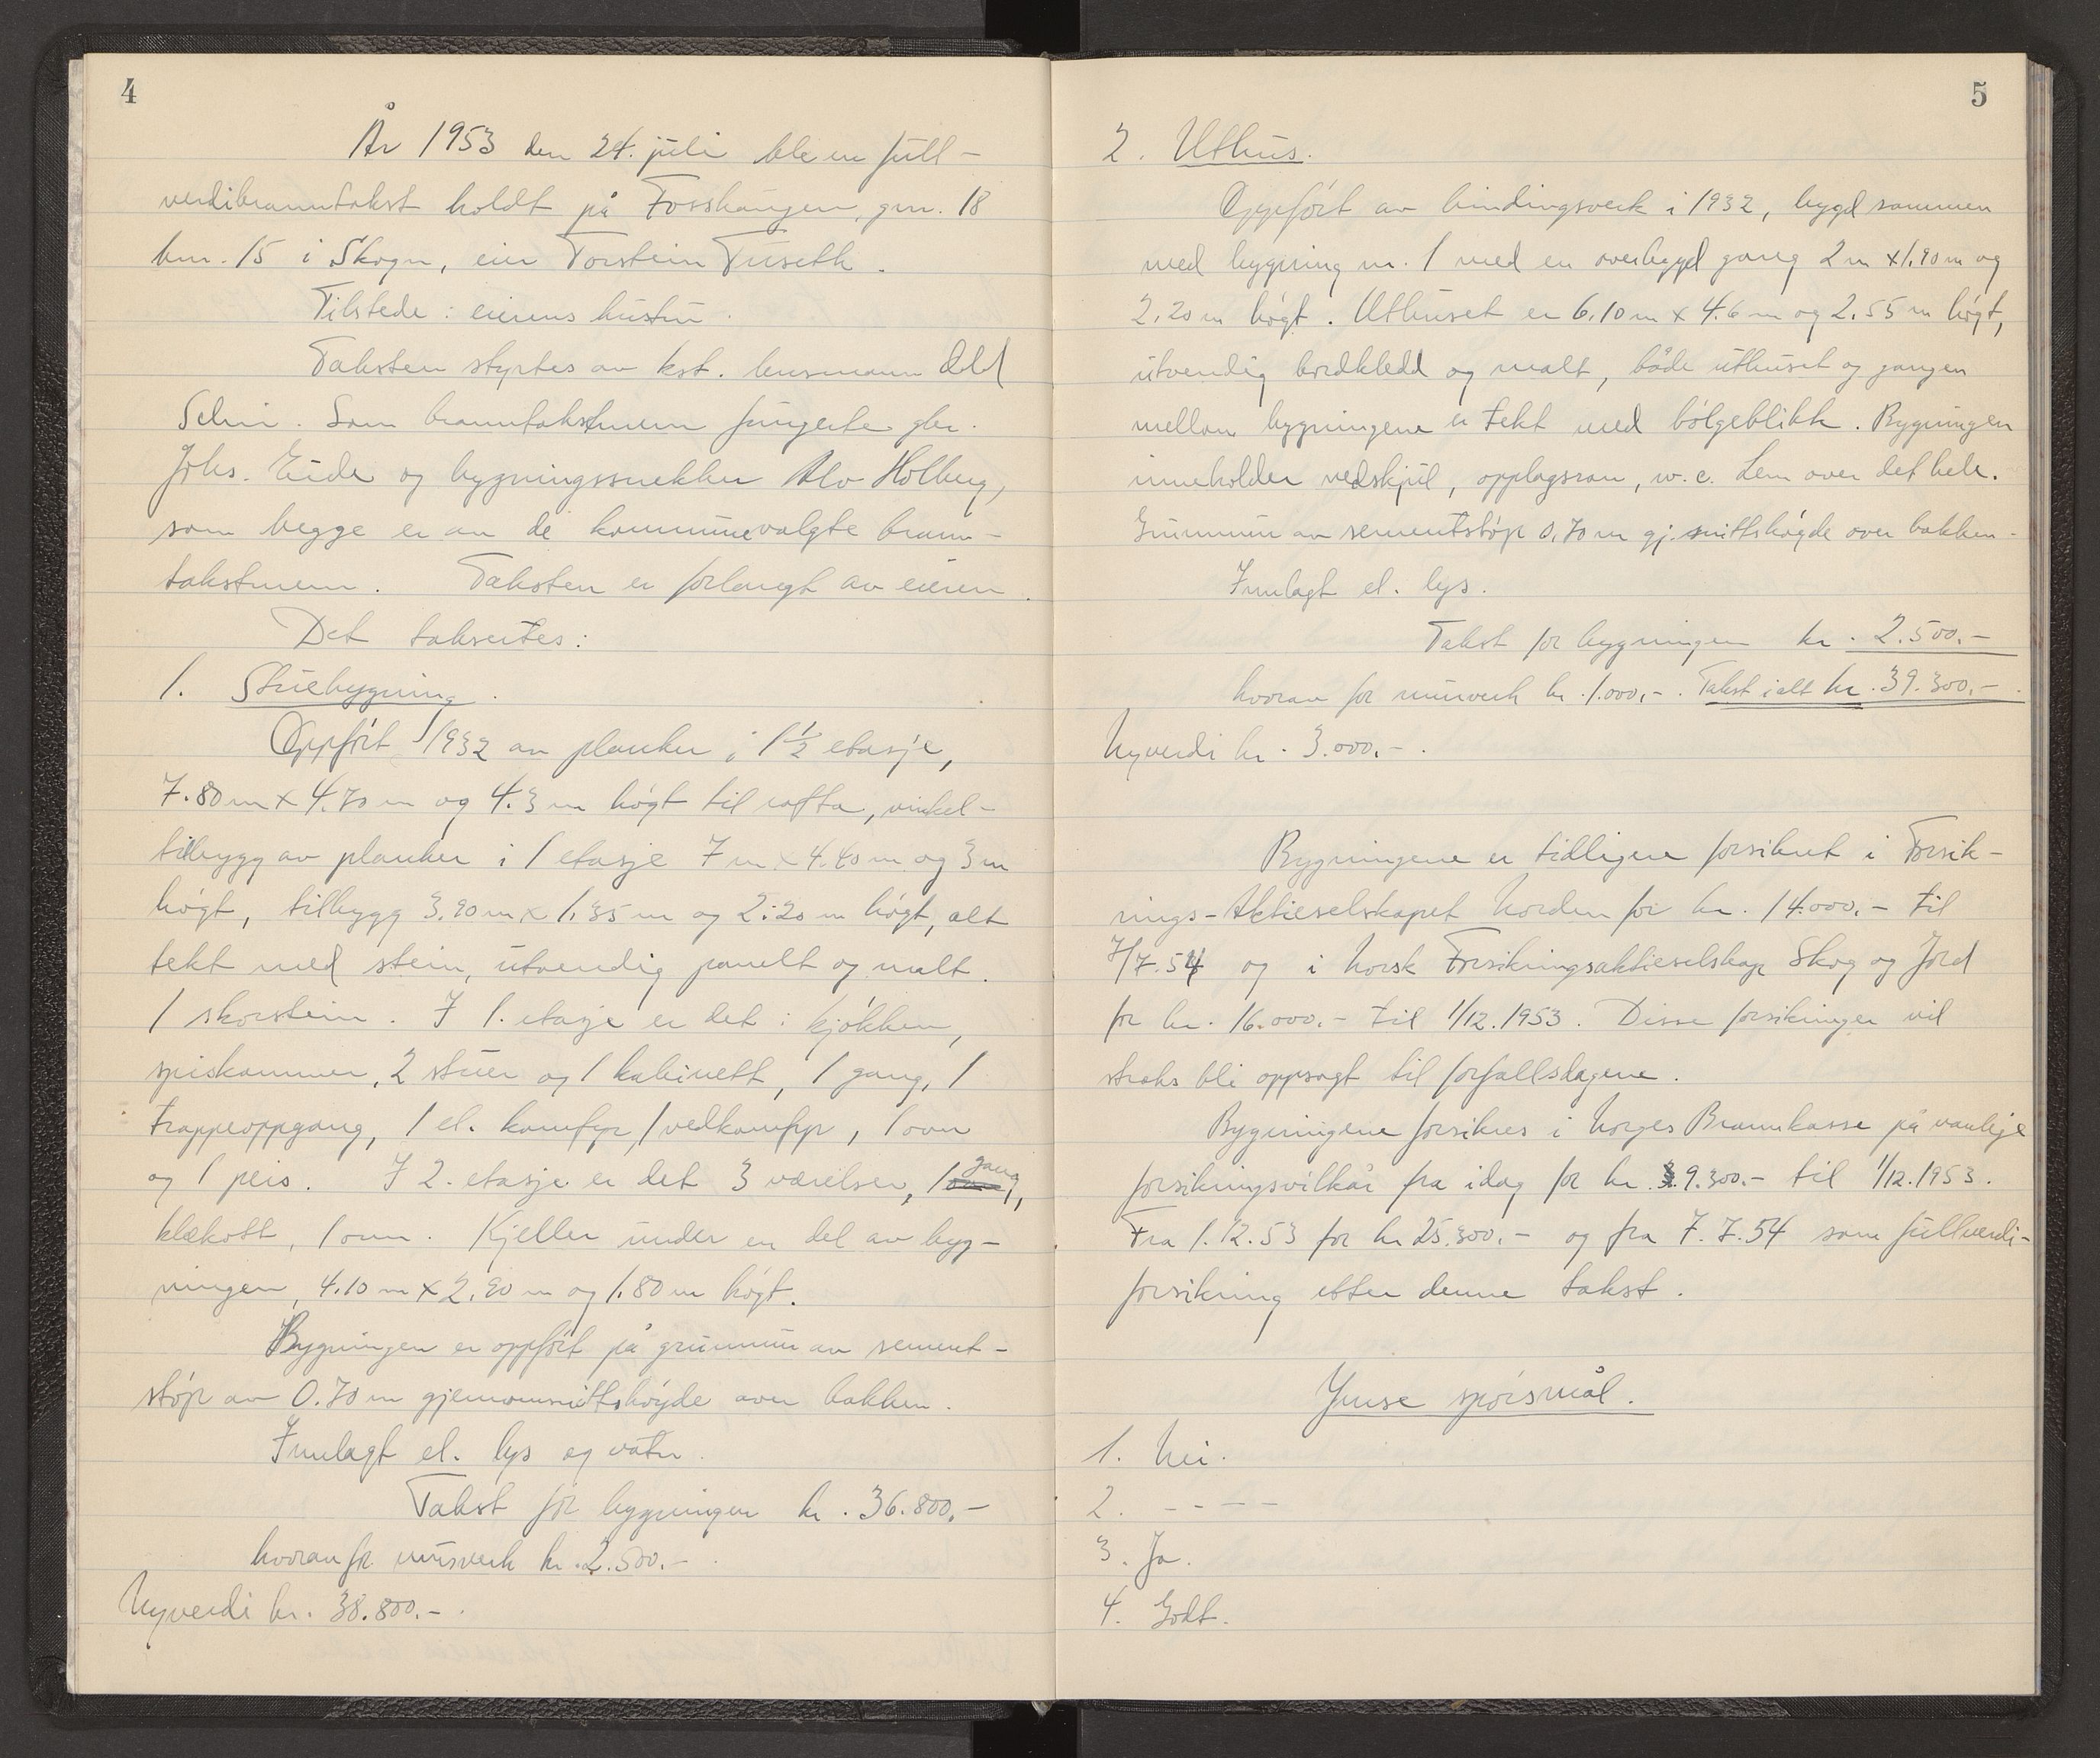 4
År 1953 den 24. juli ble en full-
verdibranntakst holdt på Fosshaugen, gnr. 18
bnr. 15 i Skogn, eier Torstein Tuseth.
Tilstede: eierens hustru.
Taksten styrtes av kst. lensmann Odd
Selni. Som branntakstmenn fungerte gbr.
Johs. Eide og bygningssnekker Alv Holberg,
som begge er av de kommunevalgte brann-
takstmenn. Taksten er forlangt av eieren.
Det taksertes:
1. Stuebygning.
Oppført 1932 av planker i 1½ etasje,
7.80 m x 4.70 m og 4.3 m høgt til rafta, vinkel-
tilbygg av planker i 1 etasje 7 m x 4.40 m og 3 m
høgt, tilbygg 3.90 m x 1.35 m og 2.20 m høgt, alt
tekt med stein, utvendig panelt og malt.
1 skorstein. I 1. etasje er det: kjøkken,
spiskammer, 2 stuer og 1 kabinett, 1 gang, 1
trappeoppgang, 1 el. komfyr, 1 vedkomfyr, 1 ovn
og 1 peis. I 2. etasje er det 3 værelser, 1 gang,
klekott, 1 ovn. Kjeller under en del av byg-
ningen, 4.10 m x 2.90 m og 1.80 m høgt.
Bygningen er oppført på grunnmur av sement-
støp av 0.70 m gjennomsnittshøyde over bakken.
Innlagt el. lys og vatn.
Takst for bygningen kr. 36.800,-
hvorav for murverk kr. 2.500.-
Nyverdi kr. 38.800.-.
5
2. Uthus.
Oppført av bindingsverk i 1932, bygd sammen
med bygning nr. 1 med en overbygd gang 2 m x 1.90 m og
2.20 m høgt. Uthuset er 6.10 m x 4.6 m og 2.55 m høgt,
utvendig bordkledd og malt, både uthuset og gangen
mellom bygningene er tekt med bølgeblikk. Bygningen
inneholder vedskjul, opplagsrom, w.c. Lem over det hele.
Grunnmur av sementstøp 0,70 m gj.snittshøgde over bakken.
Innlagt el. lys.
Takst for bygningen kr. 2.500.-
hvorav for murverk kr. 1.000,-. Takst i alt kr. 39.300,-.
Nyverdi kr. 3.000.-.
Bygningene er tidligere forsikret i Forsik-
rings-Aktieselskapet Norden for kr. 14.000.- til
7/7.54 og i Norsk Forsikringsaktieselskap Skog og Jord
for kr. 16.000.- til 1/12.1953. Disse forsikringer vil
straks bli oppsagt til forfallsdagene.
Bygningene forsikres i Norges Brannkasse på vanlige
forsikringsvilkår fra idag for kr. 9.300.- til 1/12.1953.
Fra 1.12.53 for kr 25.300.- og fra 7.7.54 som fullverdi-
forsikring etter denne takst.
Ymse spørsmål.
1. Nei.
2. - - - -
3. Ja.
4. Godt.